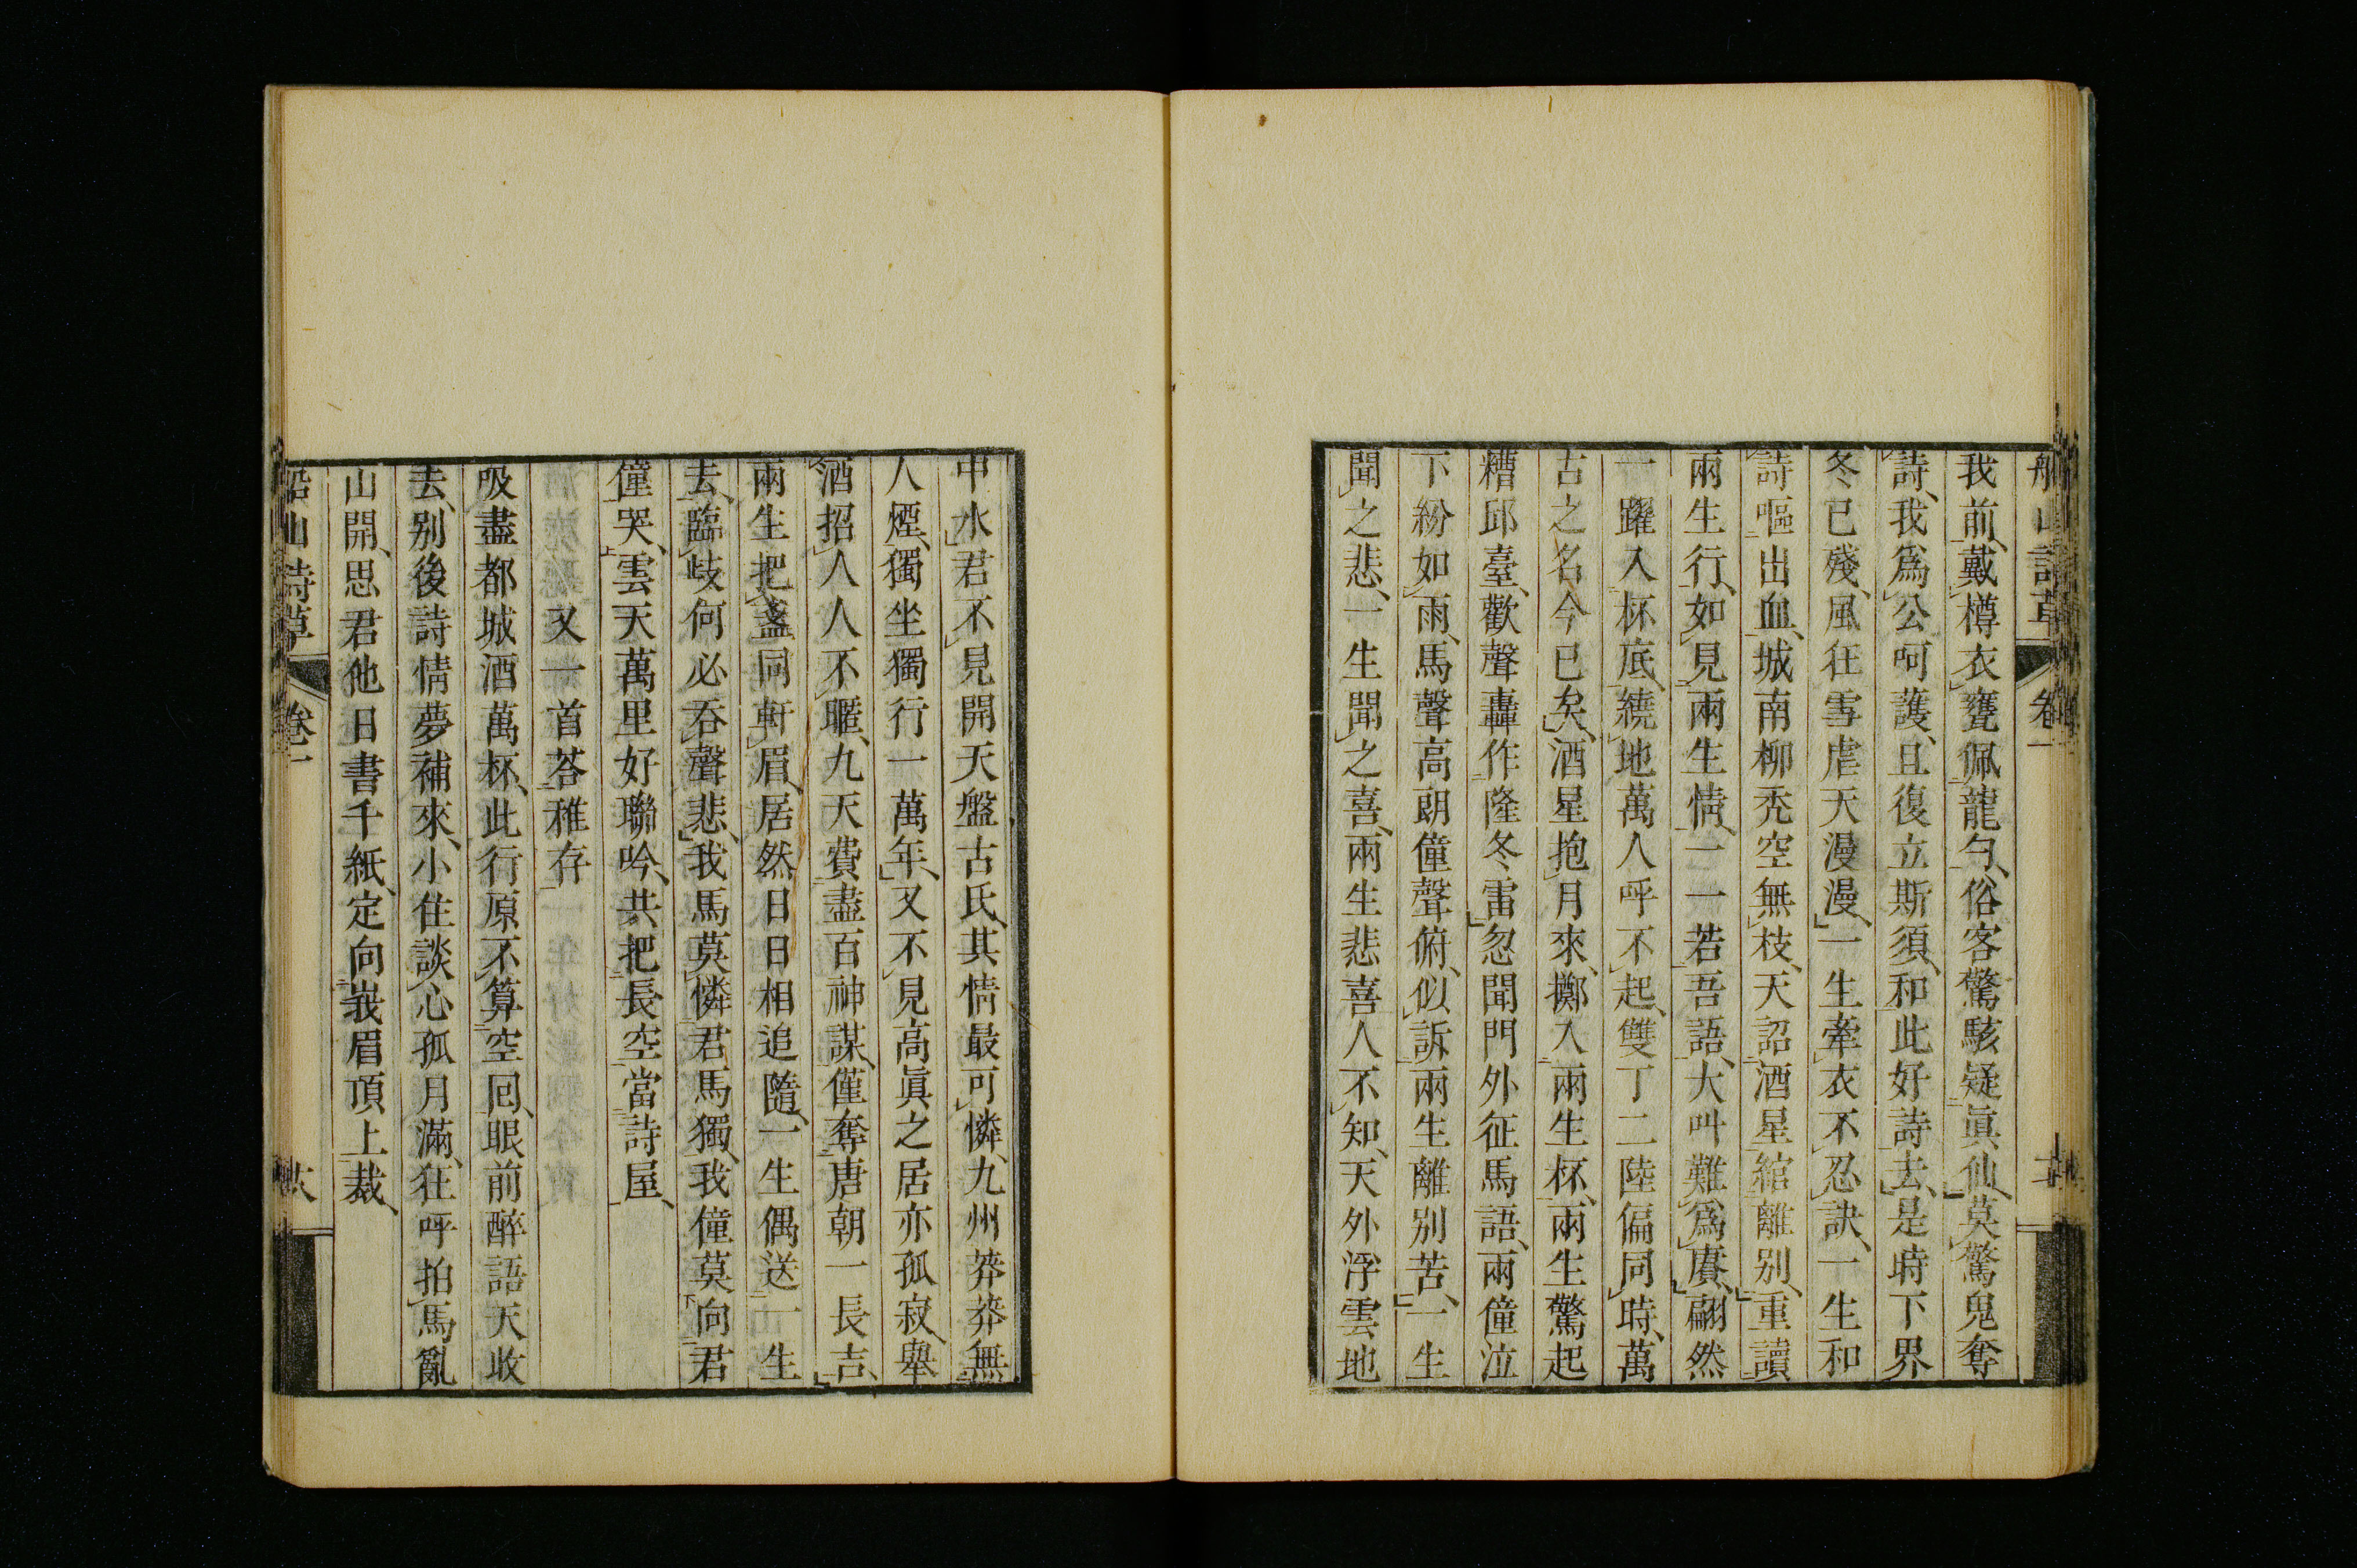 船山詩草
卷一
我前、戴樽衣甕佩龍勺、俗客驚駭疑眞仙、莫驚鬼奪
詩、我爲公呵護、且復立斯須、和此好詩去、是時下界
冬已殘、風狂雪虐天漫漫、一生牽衣不忍訣、一生和
詩嘔出血、城南柳禿空無枝、天詔酒星綰離別、重讀
兩生行、如見兩生情、一一若吾語、大叫難爲賡、翩然
一躍入杯底、繞地萬人呼不起、雙丁二陸偏同時、萬
古之名今已矣、酒星抱月來、擲入兩生杯、兩生驚起
糟邱臺、歡聲轟作隆冬雷、忽聞門外征馬語、兩僮泣
下紛如雨、馬聲高朗僮聲俯、似訴兩生離別苦、一生
聞之悲、一生聞之喜、兩生悲喜人不知、天外浮雲地
中水、君不見開天盤古氏、其情最可憐、九州莽莽無
人煙、獨坐獨行一萬年、又不見高眞之居亦孤寂、舉
酒招人人不暱、九天費盡百神謀、僅奪唐朝一長吉、
兩生把盞同軒眉、居然日日相追隨、一生偶送一生
去、臨歧何必吞聲悲、我馬莫憐君馬獨、我僮莫向君
僮哭、雲天萬里好聯吟、共把長空當詩屋、
又一首荅稚存
吸盡都城酒萬杯、此行原不算空囘、眼前醉語天收
去、別後詩情夢補來、小住談心孤月滿、狂呼拍馬亂
山開、思君他日書千紙、定向峩眉頂上裁、
船山詩草
卷一